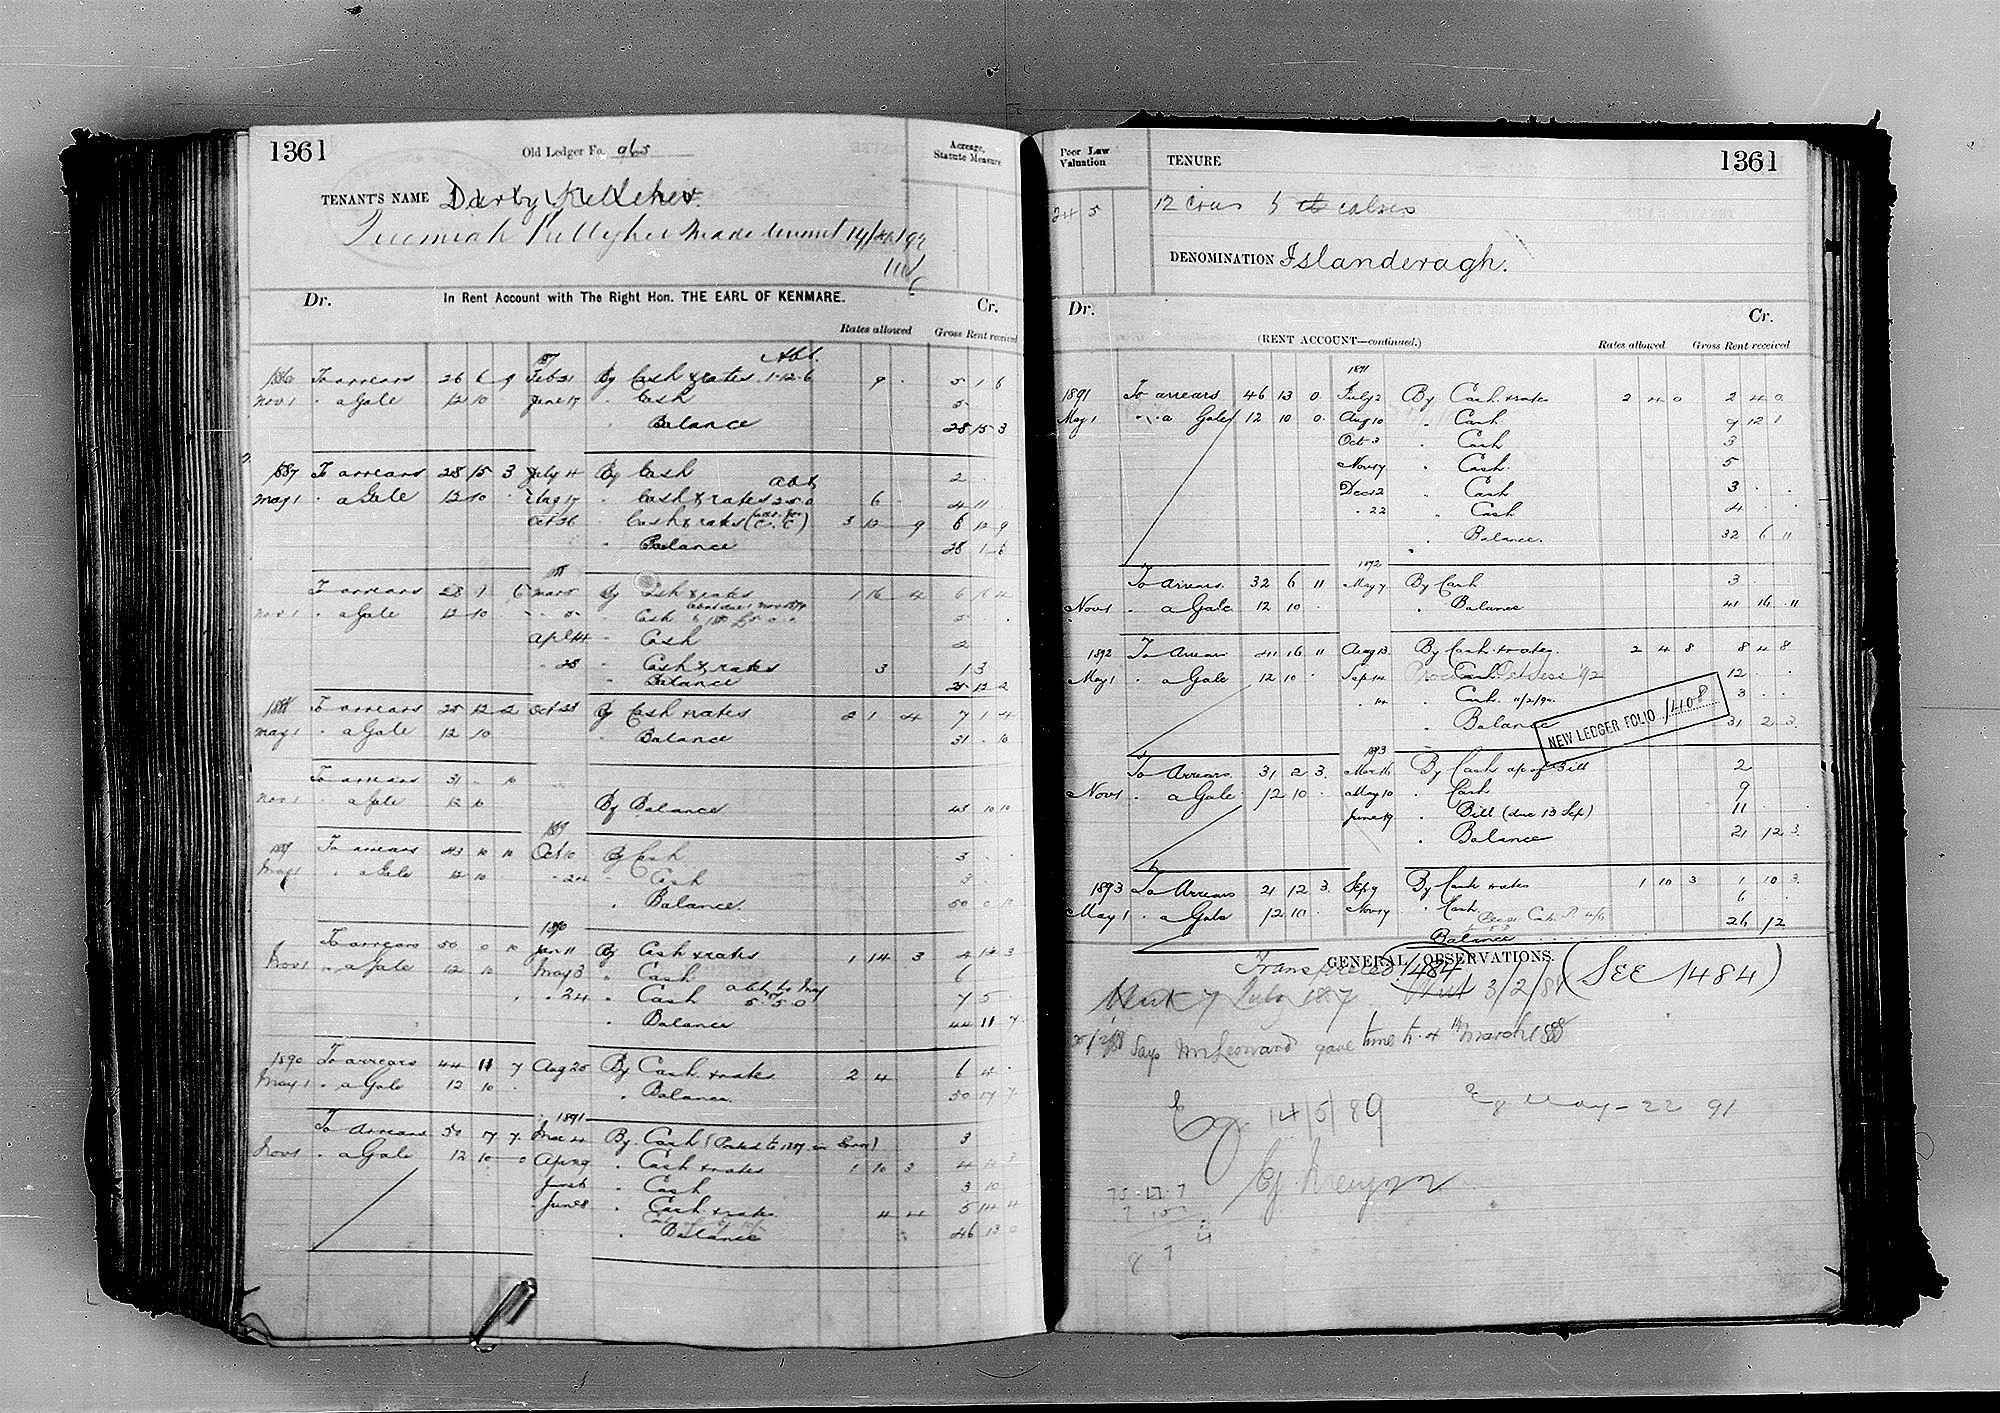 1361
Old Ledger Fo. 965
Acreage, Statute Measure
TENANT'S NAME Darby Kelleher.
Jeremiah Kelleher made tenant
Dr. In Rent Account with The Right Hon. THE EARL OF KENMARE. Cr.
Rates allowed Gross Rent received
1886 To arrears 26 6 9 Feb 21 By Cash & rates 1-12-6 9 . 5 1 6
Nov 1 " a Gale 12 10 . June 17 " Cash 5
" Balance 28 15 3
1887 To arrears 28 15 3 July 4 By Cash 2 .
May 1 " a Gale 12 10 . Aug 17 " Cash & rates 6 . 4 11 .
Oct 26 " Cash & rates 3 12 9 6 12 9
" Balance 28 1 6
To arrears 28 1 6 Mar 5 By Cash & rates 1 16 4 6 16 4
Nov 1 " a Gale 12 10 " 5 " Cash 5 .
Apl 14 " Cash 2
" 28 " Cash & rates 3 1 3
" Balance 25 12 2
1888 To arrears 25 12 2 Oct 23 By Cash & rates 2 1 4 7 1 4
May 1 " a Gale 12 10 " Balance 31 . 10
To arrears 31 . 10
Nov 1 " a Gale 12 10 By Balance 43 10 10
1889
1889 To arrears 43 10 10 Oct 10 By Cash 3 . .
May 1 " a Gale 12 10 " 24 " Cash 3 .
" Balance. 50 0 10
1890
To arrears 50 0 10 Jan 11 By Cash & rates 1 14 3 4 14 3
Nov 1 " a Gale 12 10 May 3 " Cash 6
" 24 " Cash 7 5 .
" Balance 44 11 7
1890 To arrears 44 11 7 Aug 25 By Cash & rates 2 4 6 4 .
May 1 " a Gale 12 10 . " Balance. 50 17 7
1891
To Arrears 50 17 7 Mar 4 By Cash (Posted to 1387 in Error) 3
Nov 1 " a Gale 12 10 0 Apr 29 " Cash & rates 1 10 3 4 10 3
June 6 " Cash 3 10
June 8 " Cash & rates 4 4 5 14 4
" Balance 46 13 0
Poor Law Valuation
TENURE
1361
24 5
12 Cows 5 calves
DENOMINATION Islanderagh.
Dr. Cr.
(RENT ACCOUNT—continued.) Rates allowed Gross Rent received
1891
1891 To arrears 46 13 0 July 2 By Cash & rates 2 4 0 2 4 0
May 1 " a Gale 12 10 0 Aug 10 " Cash 9 12 1
Oct 3 " Cash 3
Nov 17 " Cash. 5
Dec 12 " Cash 3 . .
" 22 " Cash 4 .
" Balance. 32 6 11
1892
To Arrears. 32 6 11 May 7 By Cash 3
Nov 1 " a Gale 12 10 . " Balance 41 16 11
1892 To Arrears 41 16 11 Aug 13 By Cash & rates 2 4 8 8 4 8
May 1 " a Gale 12 10 . Sep 14 " Cash 12 . .
" 14 " Cash 3 . .
" Balance 31 2 3
NEW LEDGER FOLIO 1408
1893
To Arrears. 31 2 3 Mar 16 By Cash ap of Bill 2
Nov 1 " a Gale 12 10 . May 10 " Cash 9
June 19 " Bill (due 13 Sep) 11
" Balance 21 12 3
1893 To Arrears 21 12 3 Sep 9 By Cash & rates 1 10 3 1 10 3
May 1 " a Gale 12 10 . Nov 17 " Cash 6
Balance 26 12
GENERAL OBSERVATIONS.
Transferred 1484 (SEE 1484)
Writ 7 July '87 Writ 3/2/88
Says Mr Leonard gave time to 4th March 1888
14/5/89 Ej May - 22 91
75 - 17 - 7